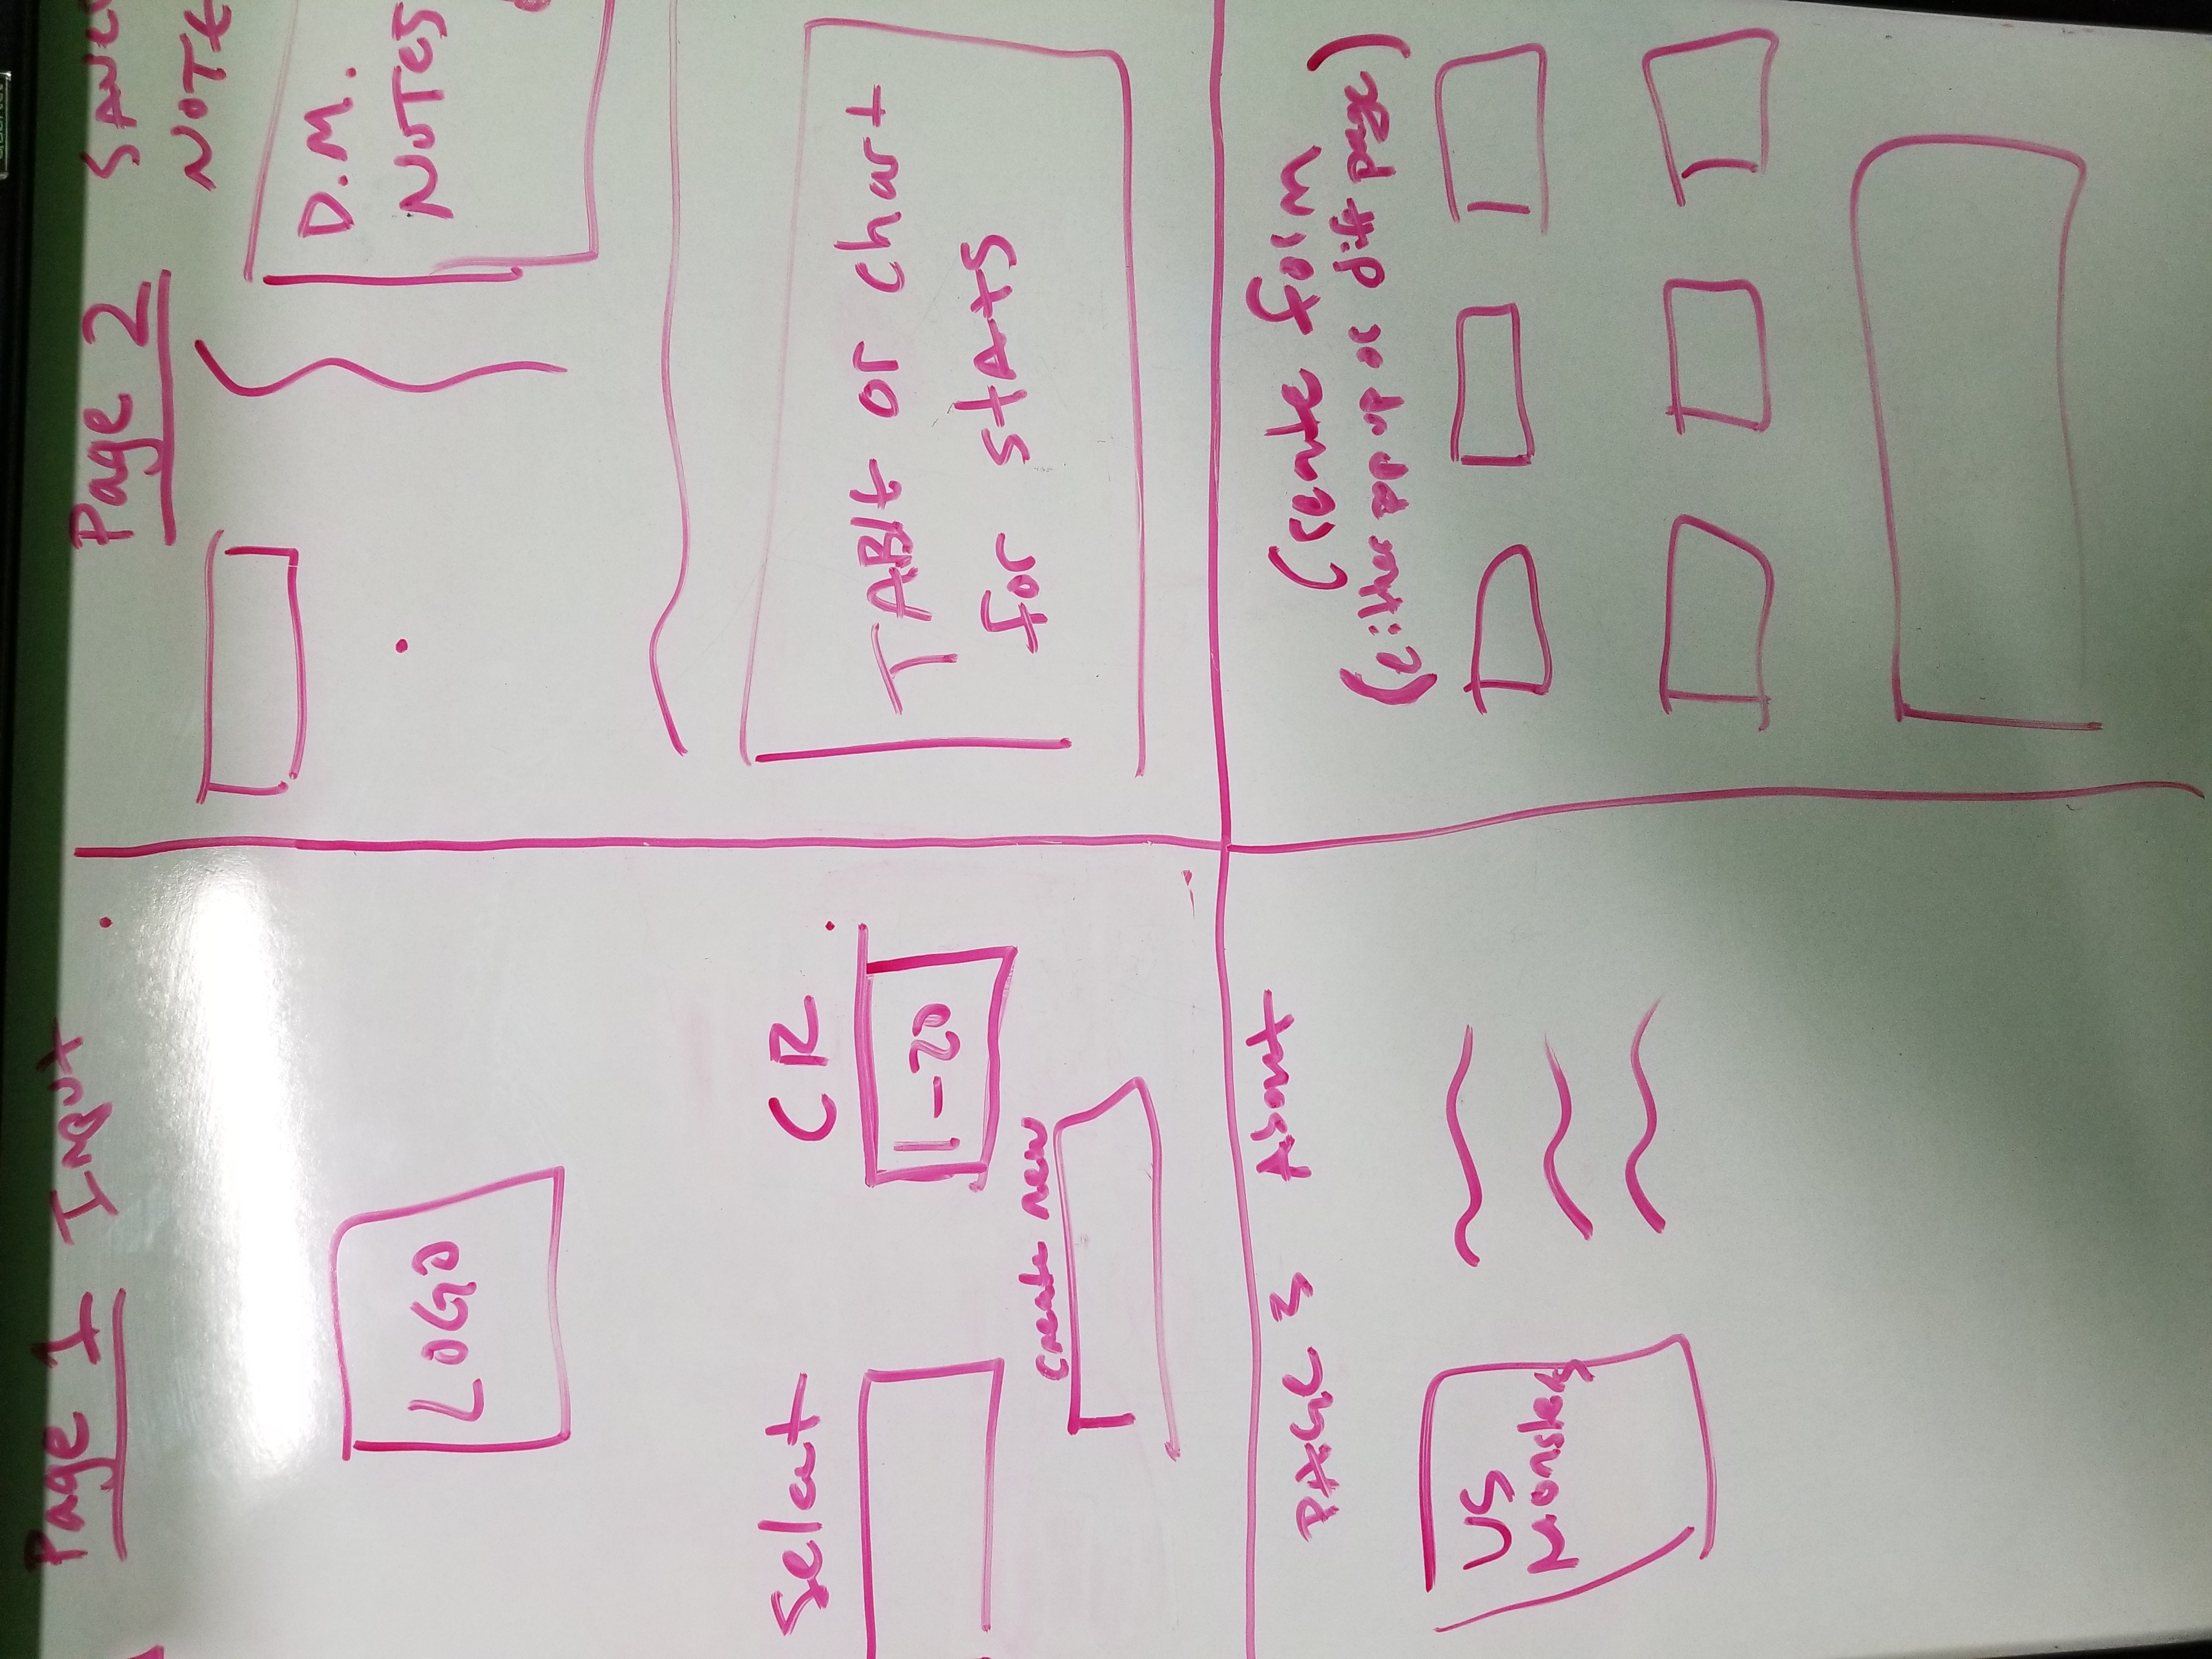 Page 1 Input
LOGO
Select
CR
1-20
create new
Page 2
NOTE
D.M.
NOTES
TABLE or chart
for stats
PAGE 3 About
US
Monsters
Create form
(either pop up or diff page)